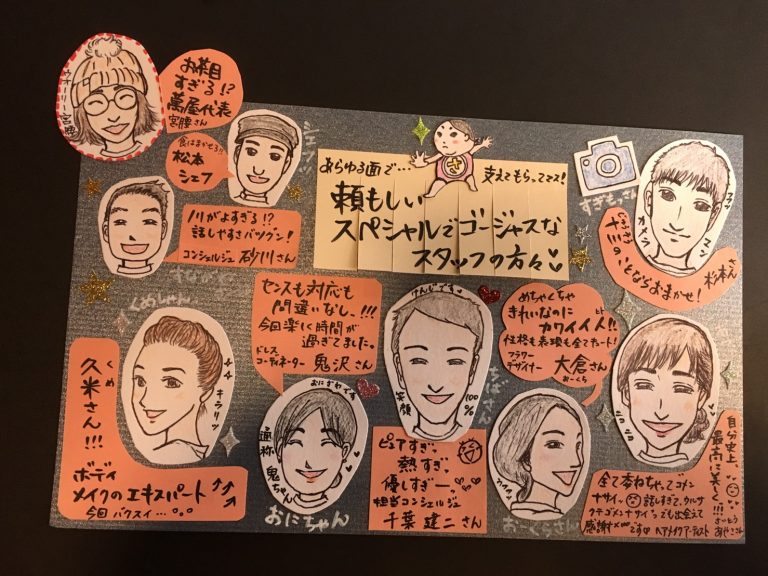 あらゆる面で…
支えてもらってマス!
頼もしい
スペシャルでゴージャスな
スタッフの方々
さ
ウォーリー宮腰
お茶目
すぎる!?
萬屋代表
宮腰さん
食はまかせろ!!
松本
シェフ
シェフッ
川がよすぎる!?
話しやすさバツグン!
コンシェルジュ 砂川さん
すぎもっさん
イケメン
マン
杉本さん
くめしゃん
キラリッ
くめ
久米さん!!!
ボディ
メイクのエキスパート
今回バクスイ…
センスも対応も
間違いなし、!!!
今回楽しく時間が
過ぎてました。
ドレス
コーディネーター 鬼沢さん
おにざわです
通称 鬼ちゃん
おにちゃん
けんじです
笑顔
100%
ちばくん
ピュアすぎっ
熱すぎ、
優しすぎー
担当コンシェルジュ
千葉建二さん
めちゃくちゃ
きれいなのに
カワイイ人!!
性格も表現も全てキュート!
フラワー
デザイナー 大倉さん
おーくら
ウフフッ
おーくらさん
自分史上、
最高に美しく!!!
全て委ねちゃってゴメン
ナサイ
話しすぎて、ウルサ
クテゴメンナサイ
でも出会えて
感謝です
ヘアメイクアーティスト
さいとう
あやこさん